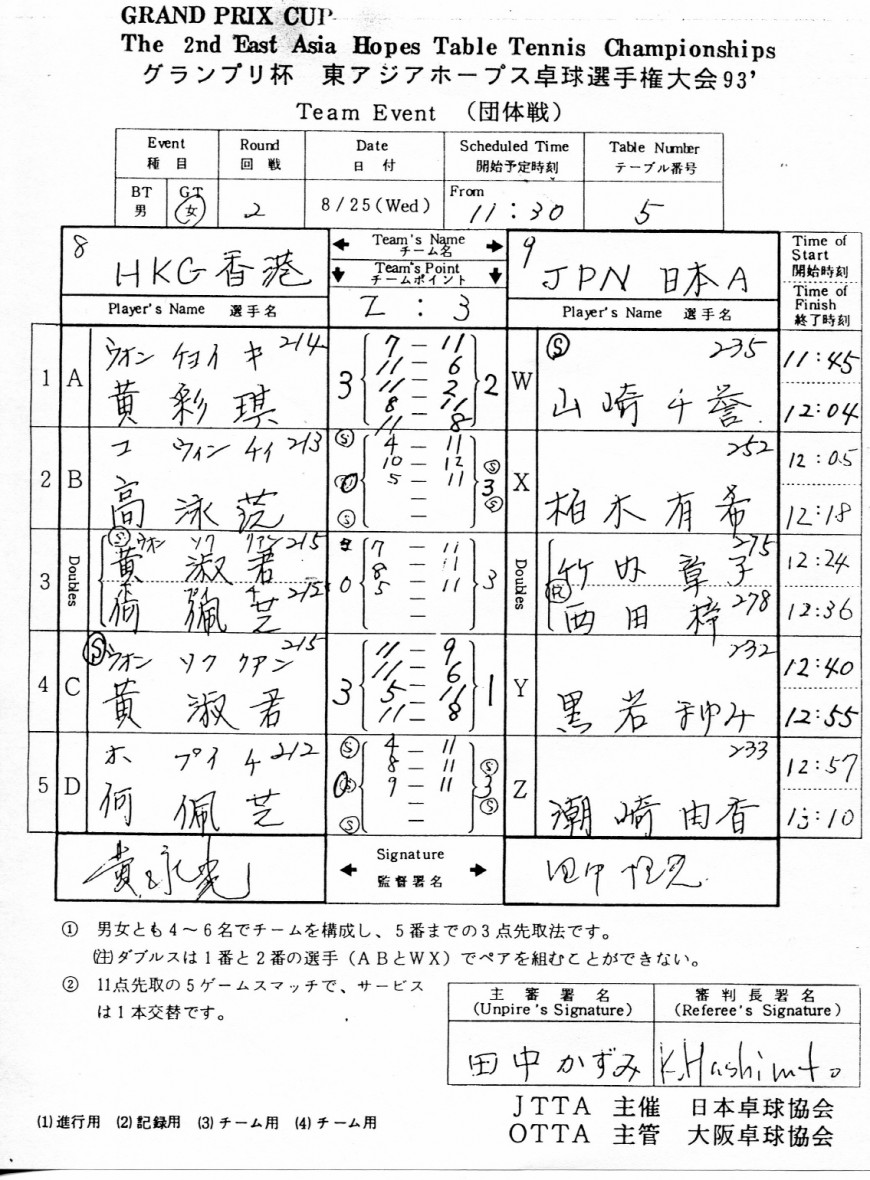 GRAND PRIX CUP
The 2nd East Asia Hopes Table Tennis Championships
グランプリ杯 東アジアホープス卓球選手権大会93'
Team Event （団体戦）
Event Round Date Scheduled Time Table Number
種目 回戦 日付 開始予定時刻 テーブル番号
BT GT From
男 女 2 8/25(Wed) 11:30 5
8 Team's Name 9 Time of
チーム名 Start
HKG 香港 Team's Point JPN 日本A 開始時刻
チームポイント Time of
Player's Name 選手名 2 : 3 Player's Name 選手名 Finish
終了時刻
ウオン チョイ キ 214 7 — 11 S 235 11:45
11 — 6
1 A 3 11 — 2 2 W
8 — 11
黄 彩 琪 11 8 山崎千誉 12:04
コ ウィン チイ 213 S 4 — 11 252 12:05
10 — 12 S
2 B 0 5 — 11 3 X
—
高 泳 S — S 柏木有希 12:18
S ウオン ソク クアン 215 7 — 11 275 12:24
黄 淑 君 8 — 11 竹内章子
3 Doubles 0 5 — 11 3 Doubles
— R 278
何 佩 芝 — 西田梓 12:36
S ウオン ソク クアン 215 11 — 9 232 12:40
11 — 6
4 C 3 5 — 11 1 Y
黄 淑 君 11 — 8 黒岩 12:55
ホ プイ チ 212 S 4 — 11 233 12:57
8 — 11 S
5 D 0 S 9 — 11 3 Z
—
何 佩 芝 S — S 潮崎由香 13:10
Signature
監督署名
① 男女とも4～6名でチームを構成し、5番までの3点先取法です。
(注)ダブルスは1番と2番の選手（ABとWX）でペアを組むことができない。
② 11点先取の5ゲームスマッチで、サービス
は1本交替です。
主審署名 審判長署名
(Unpire's Signature) (Referee's Signature)
田中かずみ K.Hashimto
JTTA 主催 日本卓球協会
(1)進行用 (2)記録用 (3)チーム用 (4)チーム用
OTTA 主管 大阪卓球協会